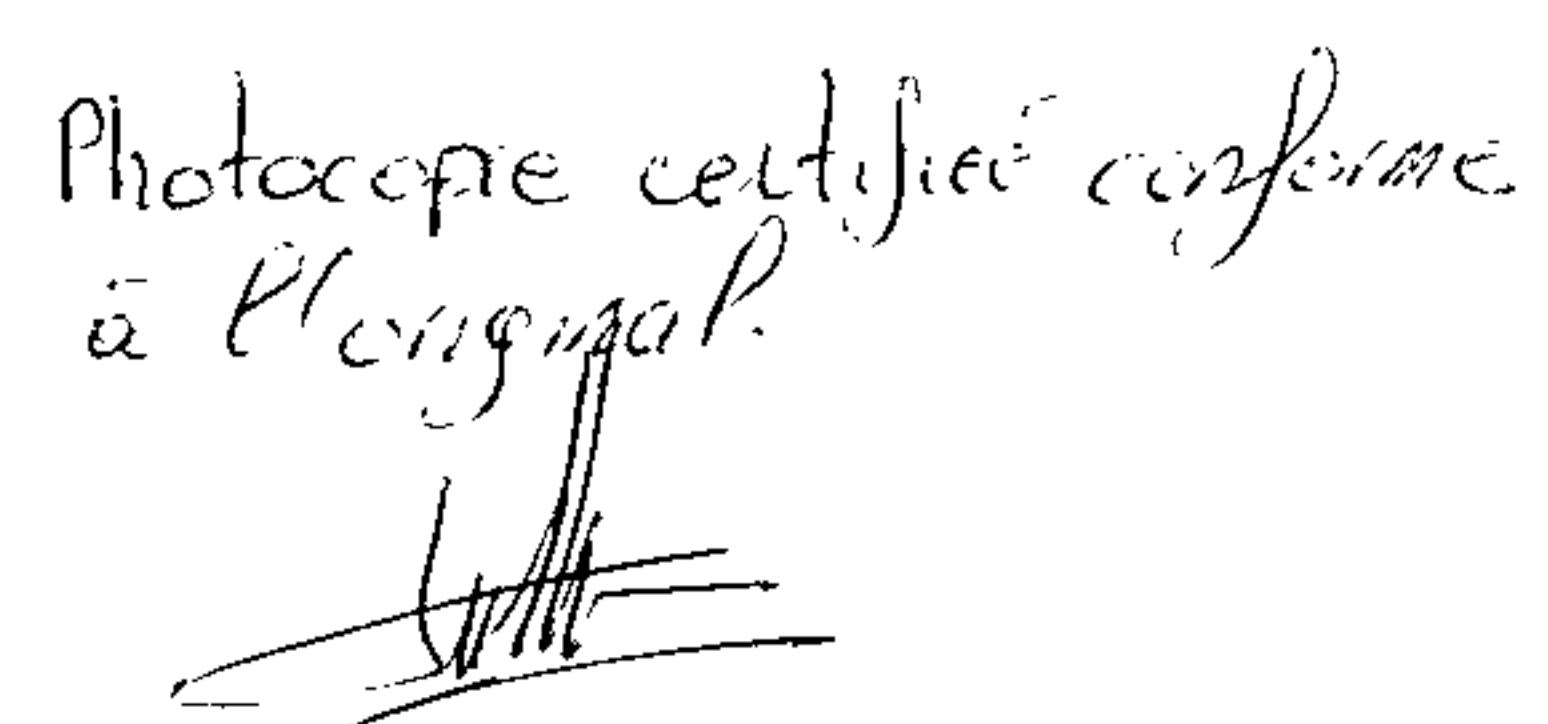 Photocopie certifiée conforme
à l'original.